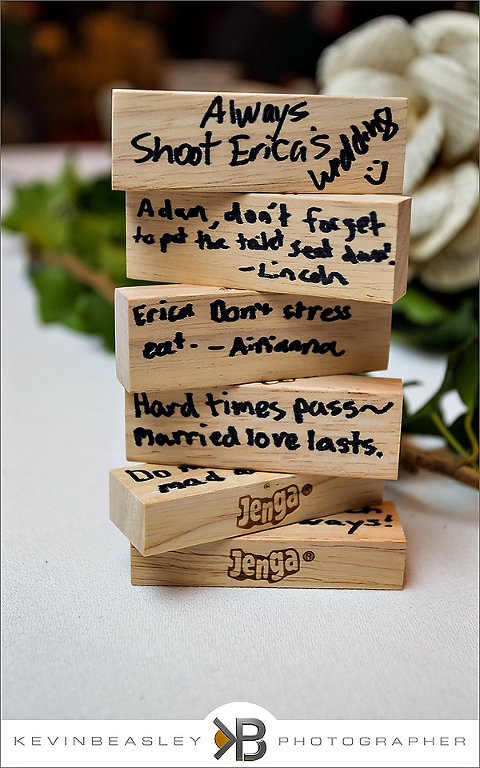 Always
Shoot Erica's
wedding
Adam, don't forget
to put the toilet seat down!
- Lincoln
Erica Don't stress
eat. - Arianna
Hard times pass~
Married love lasts.
Do
mad
Jenga®
ways!
Jenga®
KEVINBEASLEY KB PHOTOGRAPHER